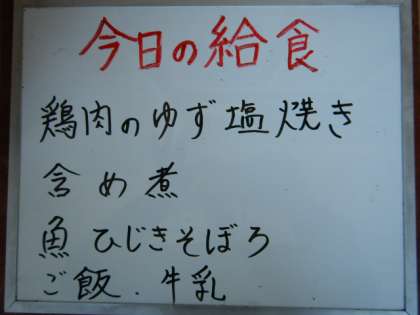 今日の給食
鶏肉のゆず塩焼き
含め煮
魚ひじきそぼろ
ご飯.牛乳